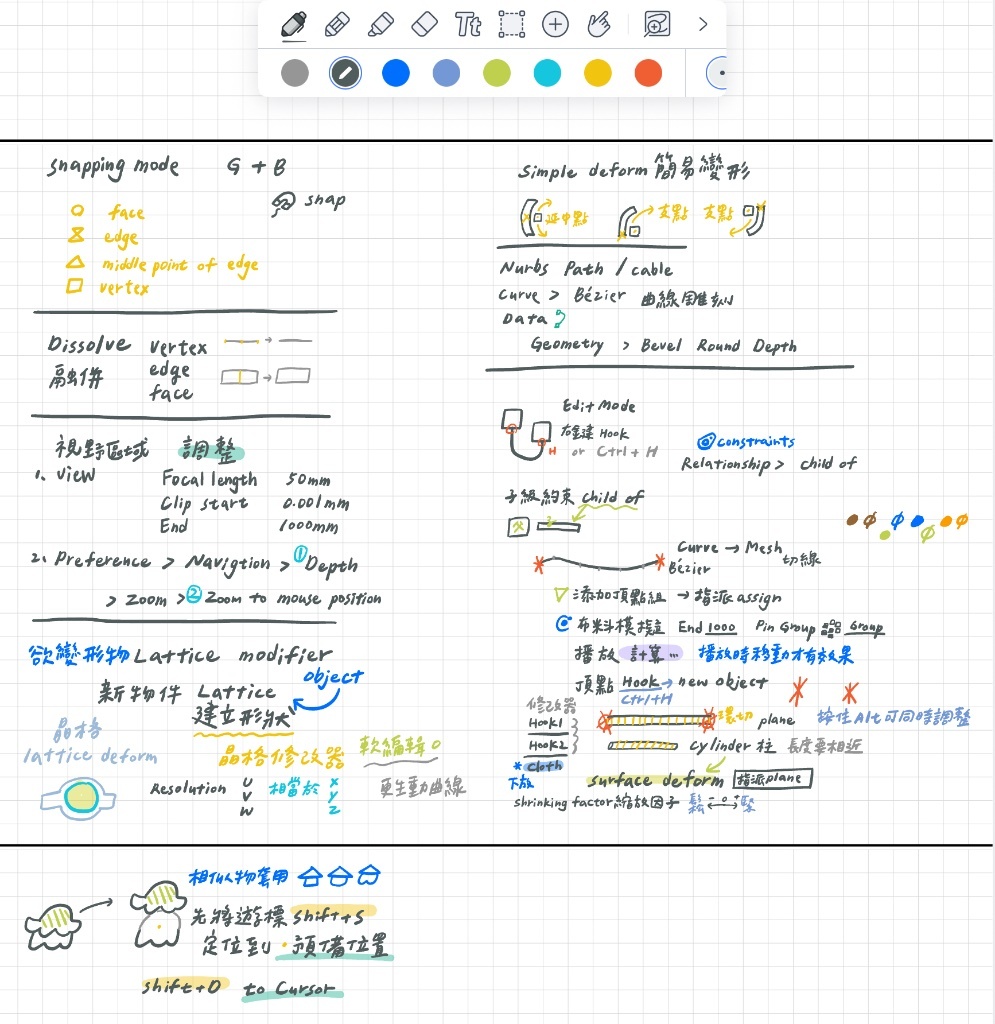 Tt
Snapping mode G + B
snap
face
edge
middle point of edge
vertex
Dissolve vertex
融併 edge
face
視野區域 調整
1、View Focal length 50mm
Clip start 0.001mm
End 1000mm
2、Preference > Navigtion > ① Depth
> Zoom > ② Zoom to mouse position
欲變形物 Lattice modifier
object
新物件 Lattice
建立形狀
晶格
lattice deform
晶格修改器 軟編輯。
Resolution U 相當於 X 更生動曲線
V Y
W Z
Simple deform 簡易變形
延中點 支點 支點
Nurbs Path / cable
Curve > Bézier 曲線雕刻
Data
Geometry > Bevel Round Depth
Edit Mode
右鍵 Hook
H or Ctrl + H
constraints
Relationship > child of
子級約束 child of
Curve → Mesh 切線
Bézier
添加頂點組 → 指派 assign
布料模擬 End 1000 Pin Group Group
播放 計算… 播放時移動才有效果
頂點 Hook → new object
Ctrl+H
修改器
Hook1
Hook2
* Cloth
下放
環切 plane 按住Alt可同時調整
cylinder 柱 長度要相近
surface deform 指派plane
shrinking factor 縮放因子 鬆 - 0 + 緊
相似物套用
先將遊標 shift+S
定位到 · 預備位置
shift+D to Cursor